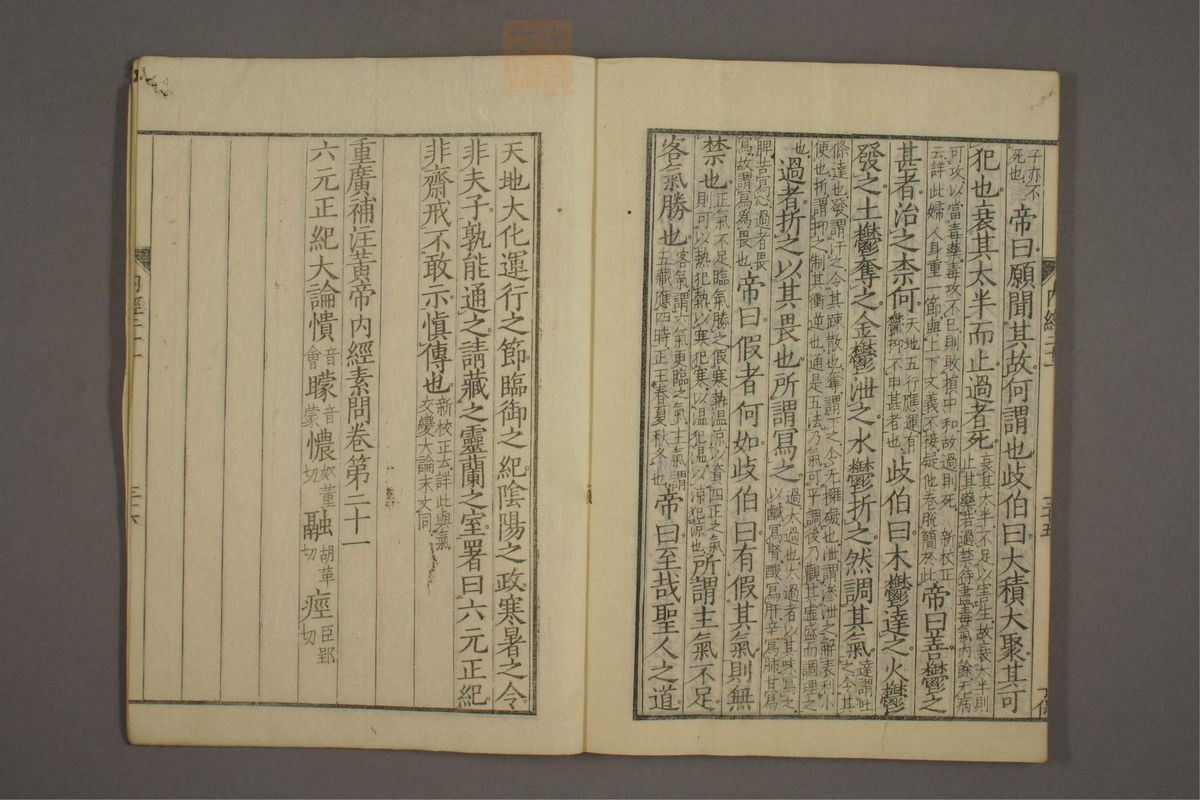 子亦不
死也
帝曰願聞其故何謂也歧伯曰大積大聚其可
犯也衰其太半而止過者死
衰其太半不足以害生故衰太半則
止其藥若過禁待盡毒氣内餘无病
可攻以當毒藥毒攻不已則敗損中和故過則死 新校正
云詳此婦人身重一節與上下文義不接疑他卷脫簡於此
帝曰善鬱之
甚者治之柰何
天地五行應運有
鬱抑不申甚者也
歧伯曰木鬱達之火鬱
發之土鬱奪之金鬱泄之水鬱折之然調其氣
達謂吐
之令其
條達也發謂汗之令其踈散也奪謂下之令无擁礙也泄謂滲泄之解表利小
便也折謂抑之制其衝逆也通是五法乃氣可平調後乃觀其虛盛而調理之
也
過者折之以其畏也所謂寫之
過太過也太過者以其味寫之
以鹹寫腎酸寫肝辛寫肺甘寫
脾苦寫心過者畏
寫故謂寫爲畏也
帝曰假者何如歧伯曰有假其氣則無
禁也
正氣不足臨氣勝之假寒熱温涼以資四正之氣
則可以熱犯熱以寒犯寒以温犯温以涼犯涼也
所謂主氣不足
客氣勝也
客氣謂六氣更臨之氣主氣謂
五藏應四時正王春夏秋冬也
帝曰至哉聖人之道
天地大化運行之節臨御之紀陰陽之政寒暑之令
非夫子孰能通之請藏之靈蘭之室署曰六元正紀
非齋戒不敢示慎傳也
新校正云詳此與氣
交變大論末文同
重廣補注黄帝内經素問卷第二十一
六元正紀大論憒
音
會
矇
音
蒙
憹
奴董
切
䎕
胡革
切
痙
巨郢
切